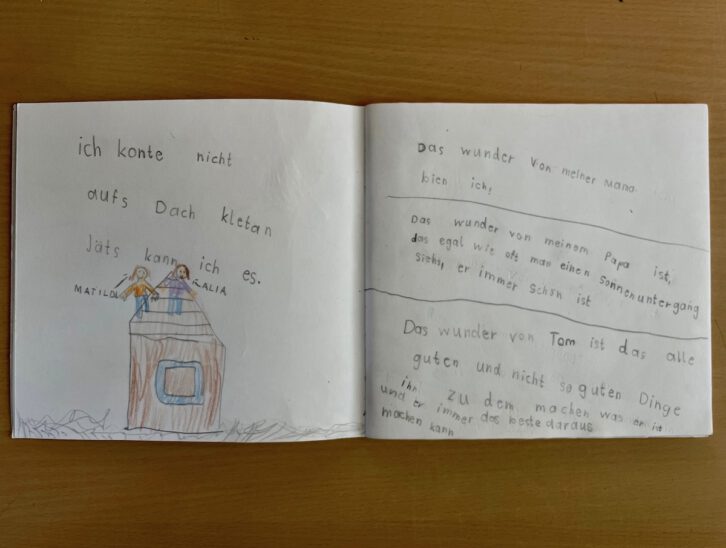 ich konte nicht
aufs Dach kletan
Jäts kann ich es.
MATILDA
ALIA
Das wunder von meiner Mama
bien ich,
Das wunder von meinem Papa ist,
das egal wie oft man einen Sonnenuntergang
sieht, er immer Schön ist
Das wunder von Tom ist das alle
guten und nicht so guten Dinge
ihn zu dem machen was er ist
und er immer das beste daraus
machen kann